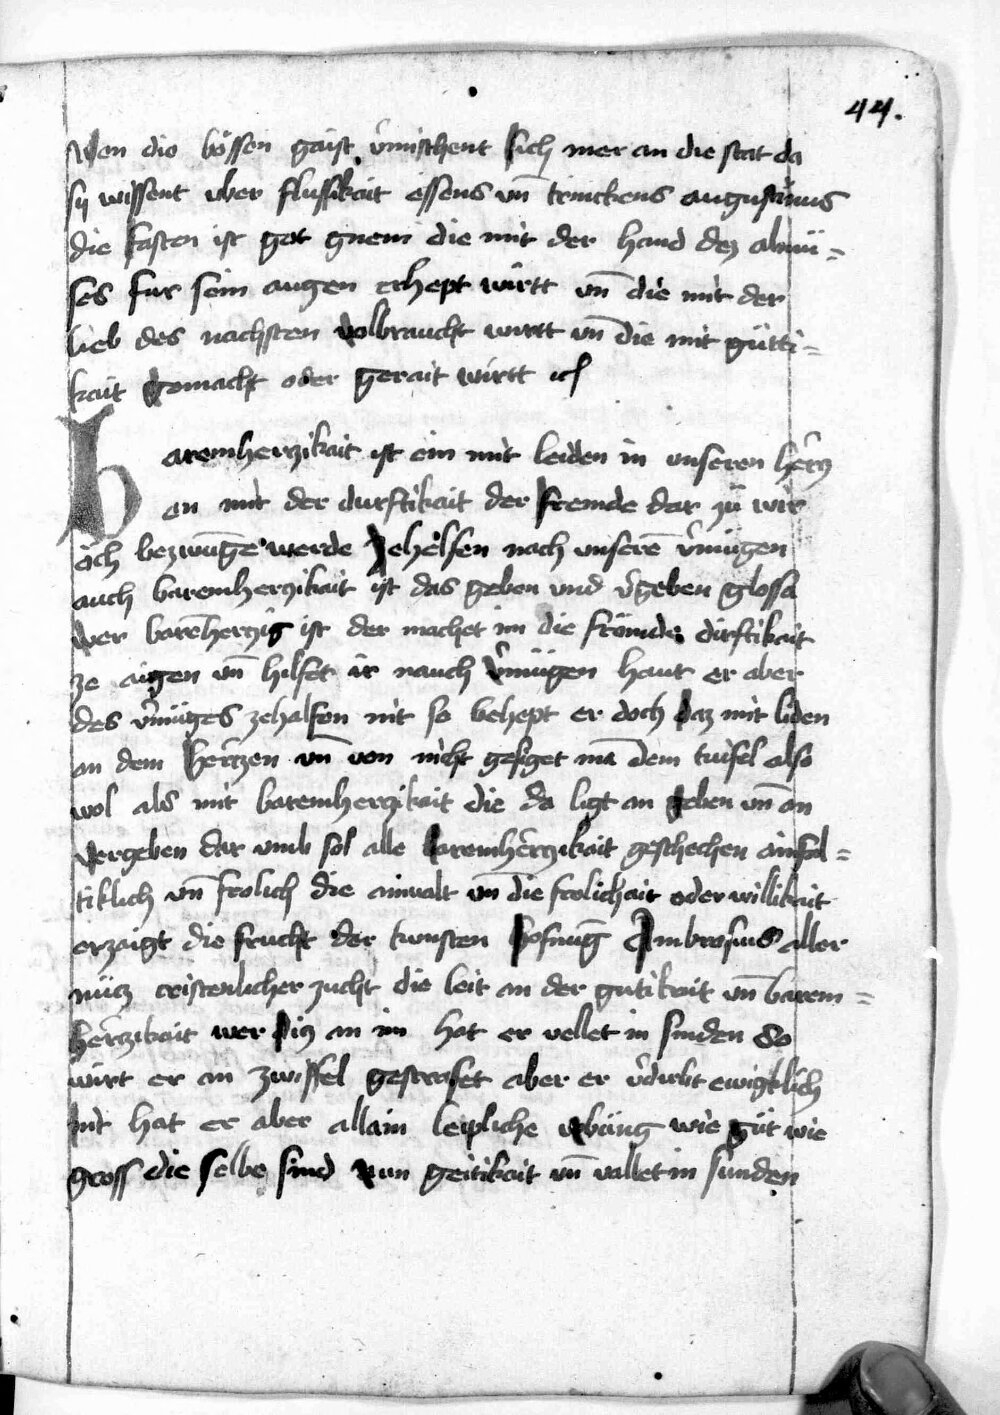 44.
Wen die bössen gaist v̄mischent sich mer an die stat da
sy wissent vber flussikait essens vn̄ trinckens augustinus
die fasten ist got gnem die mit der hand dez almü=
ses fur sein augen erhept wirtt vn̄ die mit der
lieb des nachsten volbraucht wirtt vn̄ die mit gütti=
kait gemacht oder gerait wirtt
Baremherczikait ist ein mit leiden in unseren hercz
en mit der durftikait der fremde dar zü wir
och bezwūge werde zehelfen nach unserē v̄mügen
auch baremherczikait ist das geben und v̄geben glossa
wer barēherczig ist der machet im die frömde dirftikait
ze aigen vn̄ hilfet ir nauch v̄mügen haut er aber
des v̄müges zehalfen nit so behept er doch daz mit liden
an dem herczen vn̄ von nicht gesiget mā dem tüifel also
wol als mit baremherczikait die da ligt an geben vn̄ an
vergeben dar umb sol alle baremherczikait geschechen ainfal=
tiklich vn̄ frolich die ainualt vn̄ die frolichait oder willikait
erzaigt die frucht der hofnūg Ambrosius aller
nücz cristenlicher zucht die leit an der gutikait vn̄ barem=
herczikait wer an im hat er vellet in sunden So
wirt er an zwiffel gestrafet aber er v̄dirbt ewigklich
nit hat er aber allain leipliche übüng wie güt wie
gross die selbe sind geitikait vn̄ vallet in sunden